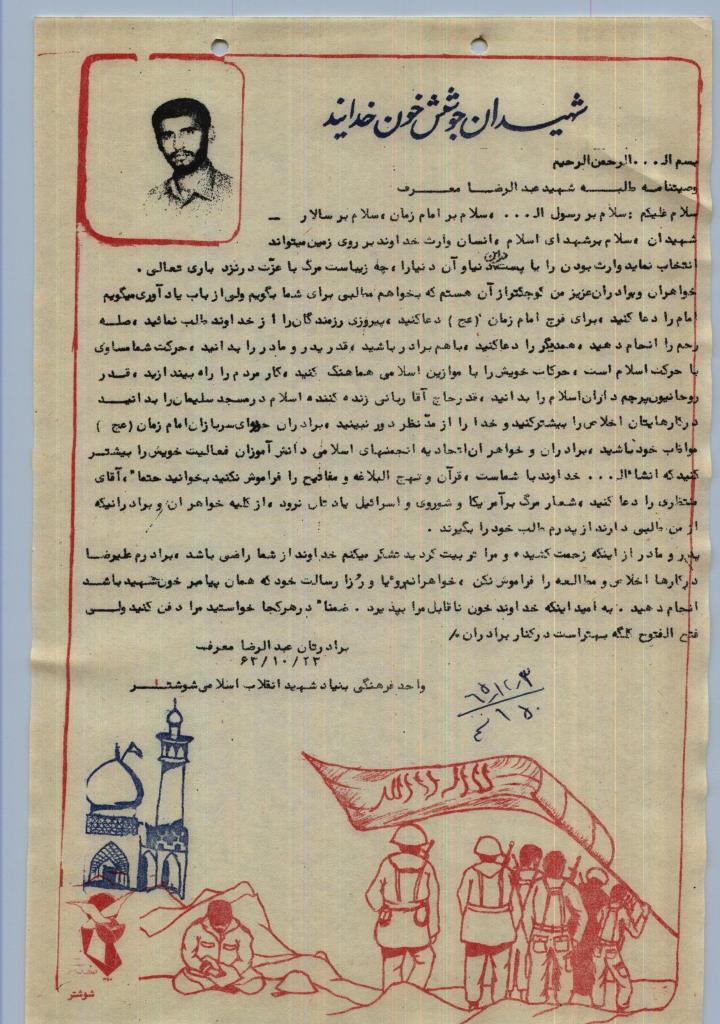 شهیدان جوشش خون خدایند
بسم الـ...الرحمن الرحیم
وصیتنامه طلبـــه شهید عبد الرضا معـــرف
سلام علیکم :سلام بر رسول الـ... ،سلام بر امام زمان ،سلام بر سالار ــ
شهیدان ،سلام برشهدای اسلام ،انسان وارث خداوند بر روی زمین میتواند
انتخاب نماید وارث بودن را یا پست دراین دنیا و آن دنیارا ،چه زیباست مرگ با عزّت درنزد باری تعالی .
خواهران وبرادران عزیز من کوچکتر از آن هستم که بخواهم مطالبی برای شما بگویم ولی از باب یاد آوری میگویم
امام را دعا کنید ،برای فرج امام زمان (عج ) دعاکنید ،پیروزی رزمندگان را از خداوند طلب نمائید ،صلــه
رحم را انجام دهید ،همدیگر را دعاکنید ،باهم برادر باشید ،قدر پدر و مادر را بدانید ،حرکت شما مساوی
با حرکت اسلام است ،حرکات خویش را با موازین اسلامی هماهنگ کنید ،کار مردم را راه بیندازید ،قــدر
روحانیون پرچم داران اسلام را بدانید ،قدر حاج آقا ربانی زنده کننده اسلام درمسجد سلیمان را بدانیــد
درکارهایتان اخلاص را بیشترکنید و خدا را از مدّ نظر دور نبینید ،برادران حوزه‌ای سربازان امام زمان (عج )
مواظب خود باشید ،برادران و خواهران اتحادیه انجمنهای اسلامی دانش آموزان فعالیت خویش را بیشتــر
کنید که انشا"الـ... خداوند با شماست ،قرآن و نهج البلاغه و مفاتیح را فراموش نکنید بخوانید حتما" ،آقای
منتظری را دعا کنید ،شعار مرگ بر آمریکا و شوروی و اسرائیل یادتان نرود ،از کلیه خواهران و برادرانیکه
از من طلبی دارند از پدرم طلب خود را بگیرند .
پدر و مادر از اینکه زحمت کشیده و مرا تربیت کردید تشکر میکنم خداوند از شما راضی باشد ،برادرم علیرضا
درکارها اخلاص و مطالعه را فراموش نکن ،خواهرانم رویا و رزا رسالت خود که همان پیامبر خون شهید باشد
انجام دهید . به امید اینکه خداوند خون ناقابل مرا بپذیرد . ضمنا" درهرکجا خواستید مرا دفن کنید ولــی
فتح الفتوح کلگه بهتراست درکنار برادران ./
برادرتان عبدالرضا معرف
۶۲/۱۰/۲۳
واحد فرهنگی بنیاد شهید انقلاب اسلامی شوشتــر
۶۵/۱۲/۳
لا اله الا الله
شوشتر